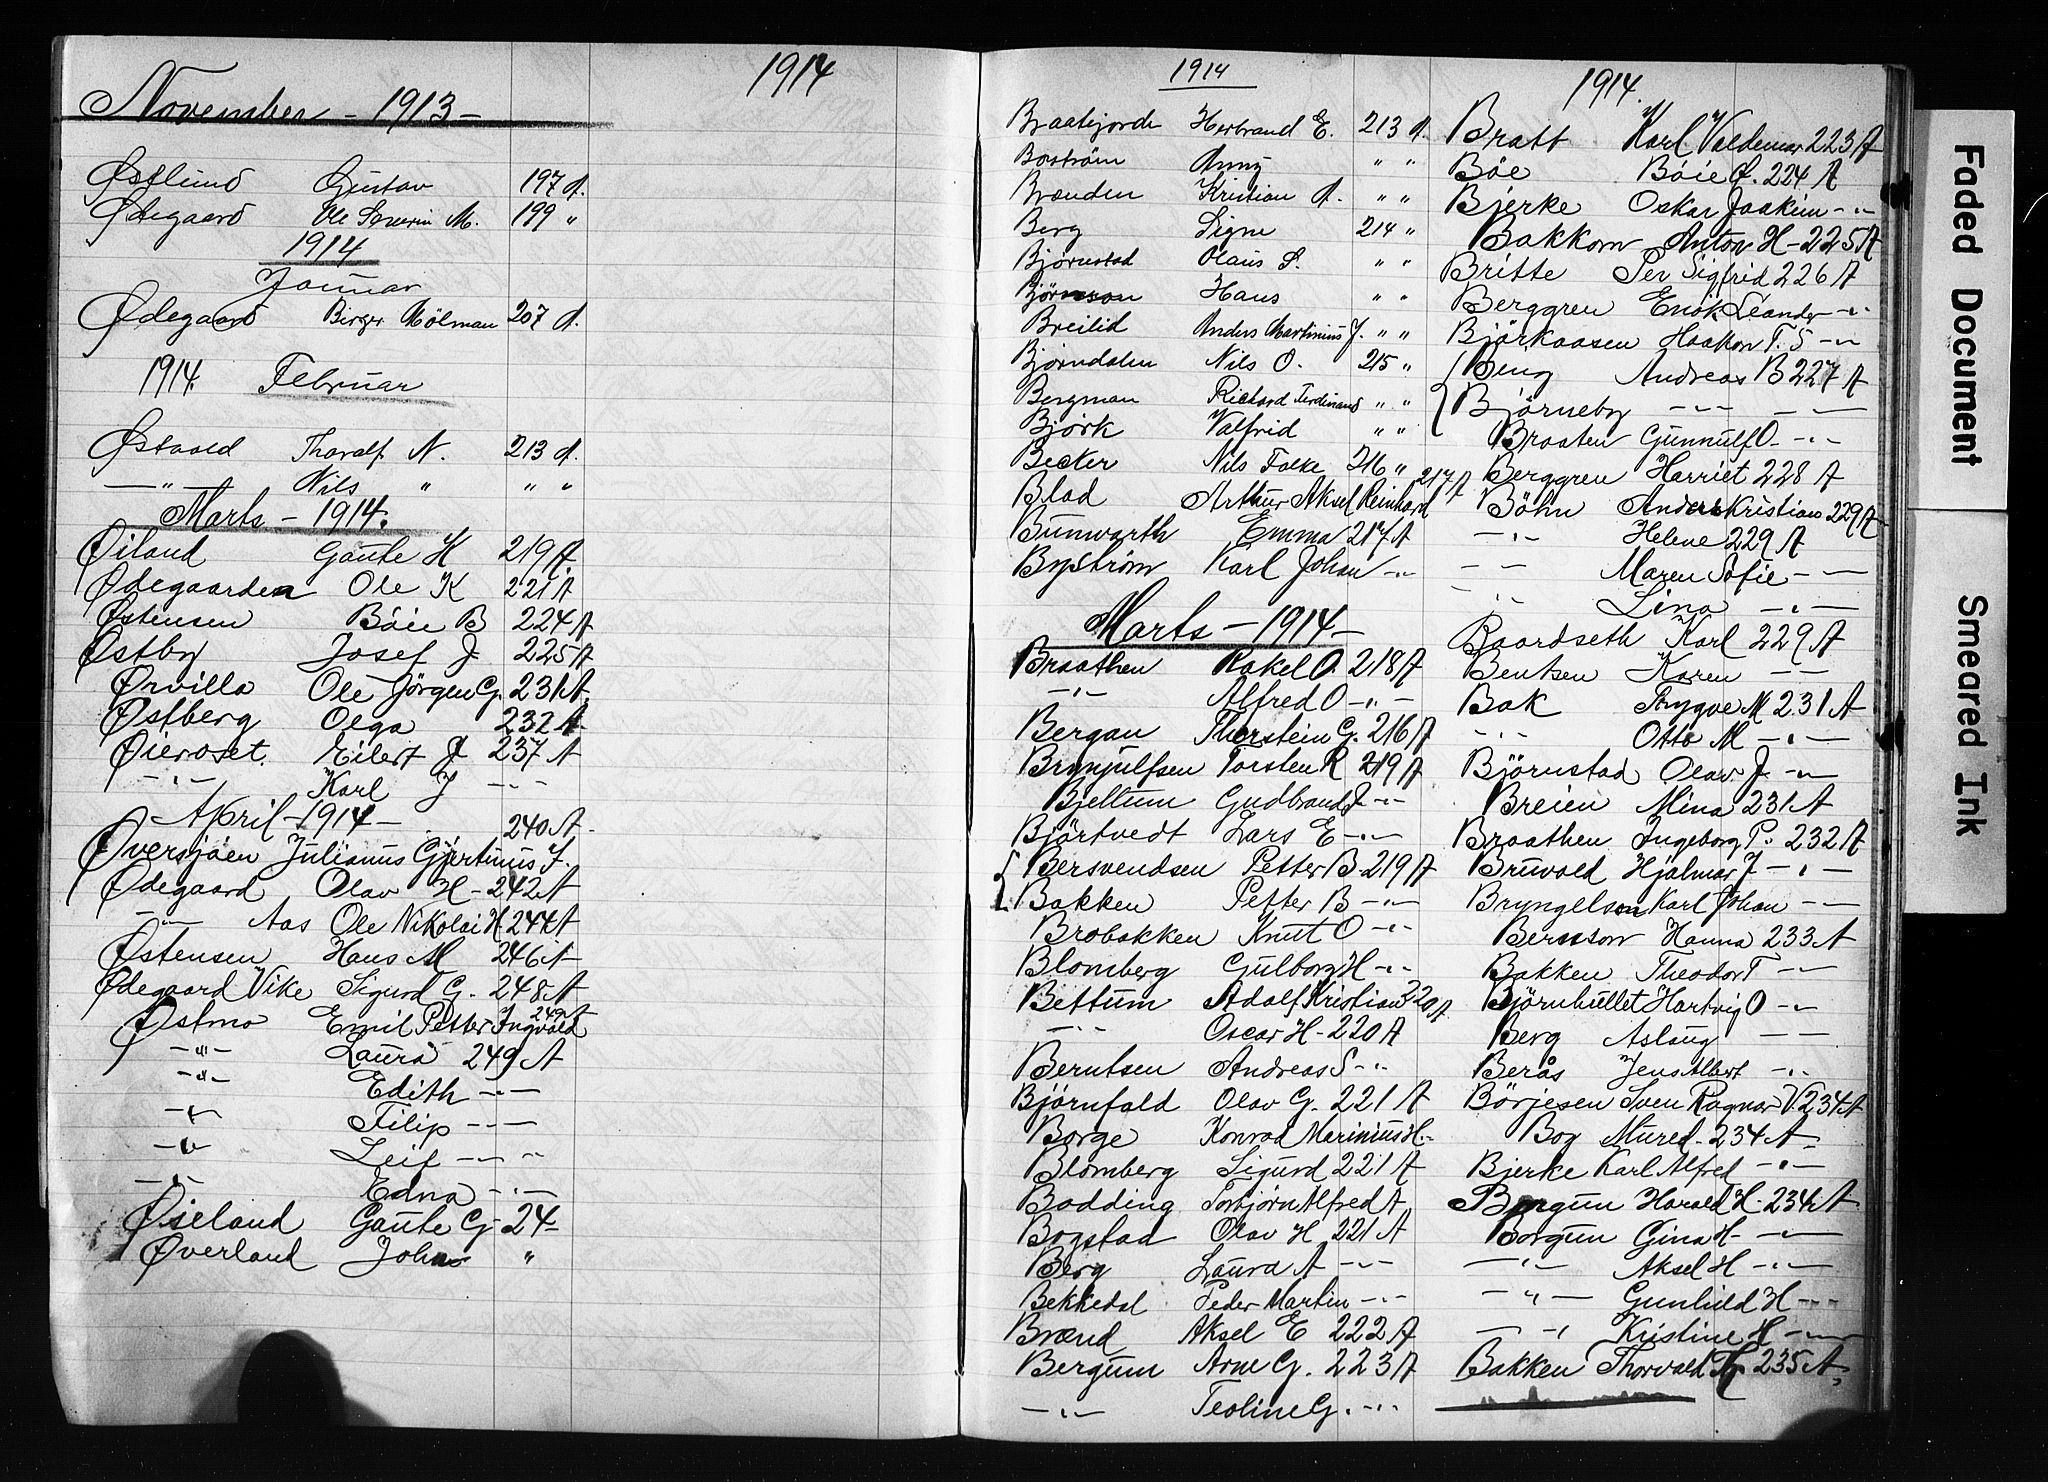 November - 1913 -
Østlund Gustav 197 A.
Ødegaard Ole Severin M. 199 "
1914
Januar
Ødegaard Birger Hölman 207 A.
1914. Februar
Østvold Tharalf N. 213 A.
— " — Nils " " "
Marts - 1914.
Øiland Gaute H 219 A.
Ødegaarden Ole K 221 A
Østensen Böie B 224 A
Østby Josef J 225 A
Ørvilla Ole Jörgen G. 231 A
Østberg Olga 232 A
Øieroset. Eilert J 237 A
— " — Karl J - - -
April - 1914 -
240 A -
Øversjøen Julianus Gjertinus J.
Ødegaard Olav H - 242 A
— " — Aas Ole Nikolai H 244 A
Østensen Hans M 246 A
Ødegaard Vike Sigurd G. 248 A
249 A
Østmo Emil Petter Ingvald
— " — Laura 249 A
— " — Edith — " —
— " — Filip — " —
— " — Leif — " —
— " — Edna — " —
Øiseland Gaute G - 24 -
Øverland Johan "
1914
1914
Braatejorde Herbrand E. 213 A.
Boström Anny " "
Brænden Kristian A. " "
Berg Signe 214 "
Bjørnstad Olaus S. " "
Bjørnson Hans " "
Breilid Anders Martinius J. " "
Bjørndalen Nils O. 215 "
Bergman Richard Ferdinand " "
Björk Valfrid " "
Becker Nils Falke 216 "
217 A
Blad Arthur Aksel Reinhard
Bunwarth Emma 217 A
Byström Karl Johan - " -
Marts - 1914 -
Braathen Rakel O. 218 A
— " — Alfred O - " -
Bergan Thorstein G. 216 A
Brynjulfsen Torsten R 219 A
Bjellum Gudbrand J - " -
Björtvedt Lars E - " -
Bersvendsen Petter B. 219 A
Bakken Petter B - " -
Brobakken Knut O - " -
Blomberg Gulborg H - " -
Bettum Adolf Kristian 220 A
— " — Oscar H - 220 A
Berntsen Andreas S - " -
Björnfald Olav G. 221 A
Borge Konrad Marinius H. -
Blomberg Sigurd 221 A
Bodding Torbjörn Alfred A
Bogstad Olav H 221 A
Berg Laura A - " -
Bekkedal Peder Martin - " -
Brænd Aksel E 222 A
Bergum Arne G. 223 A
— " — Teoline G. - " -
1914.
Bratt Karl Valdemar 223 A
Böe Böie O. 224 A
Bjerke Oskar Joakim - " -
Bakkom Anton H - 225 A
Britte Per Sigfrid 226 A
Berggren Enok Leander - " -
Björkaasen Haakon T. S - " -
Berg Andreas B 227 A
Björneby - " - - " -
Braaten Gunnulf O. - " -
Berggren Harriet 228 A
Böhn Anders Kristian 229 A
— " — Helene 229 A
— " — Maren Sofie - " -
— " — Lina - " -
Baardseth Karl 229 A
Bentsen Karen - " -
Bak Trygve M 231 A
— " — Otto M - " -
Björnstad Olav J - " -
Breien Mina 231 A
Braathen Ingeborg P. 232 A
Bruvold Hjalmar J - " -
Bryngelsen Karl Johan - " -
Bersson Hanna 233 A
Bakken Theodor T - " -
Björnhullet Hartvig O - " -
Berg Aslaug - " -
Berås Jens Albert - " -
Börjesen Sven Ragnar V. 234 A
Boy Mured - 234 A
Bjerke Karl Alfred - " -
Borgun Harald H - 234 A
Borgun Gina H - " -
— " — Aksel H - " -
— " — Gunhild H - " -
— " — Kristine H - " -
Bakken Thorvald H 235 A
Faded Document
Smeared Ink